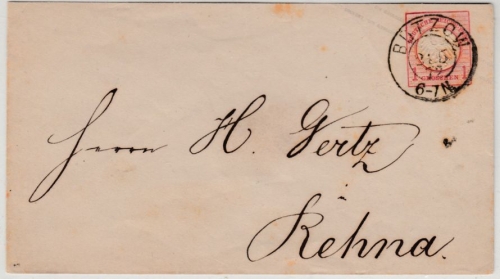 BÜTZOW
6-7N
1 GROSCHEN 1
Herrn H. Gertz
Rehna.